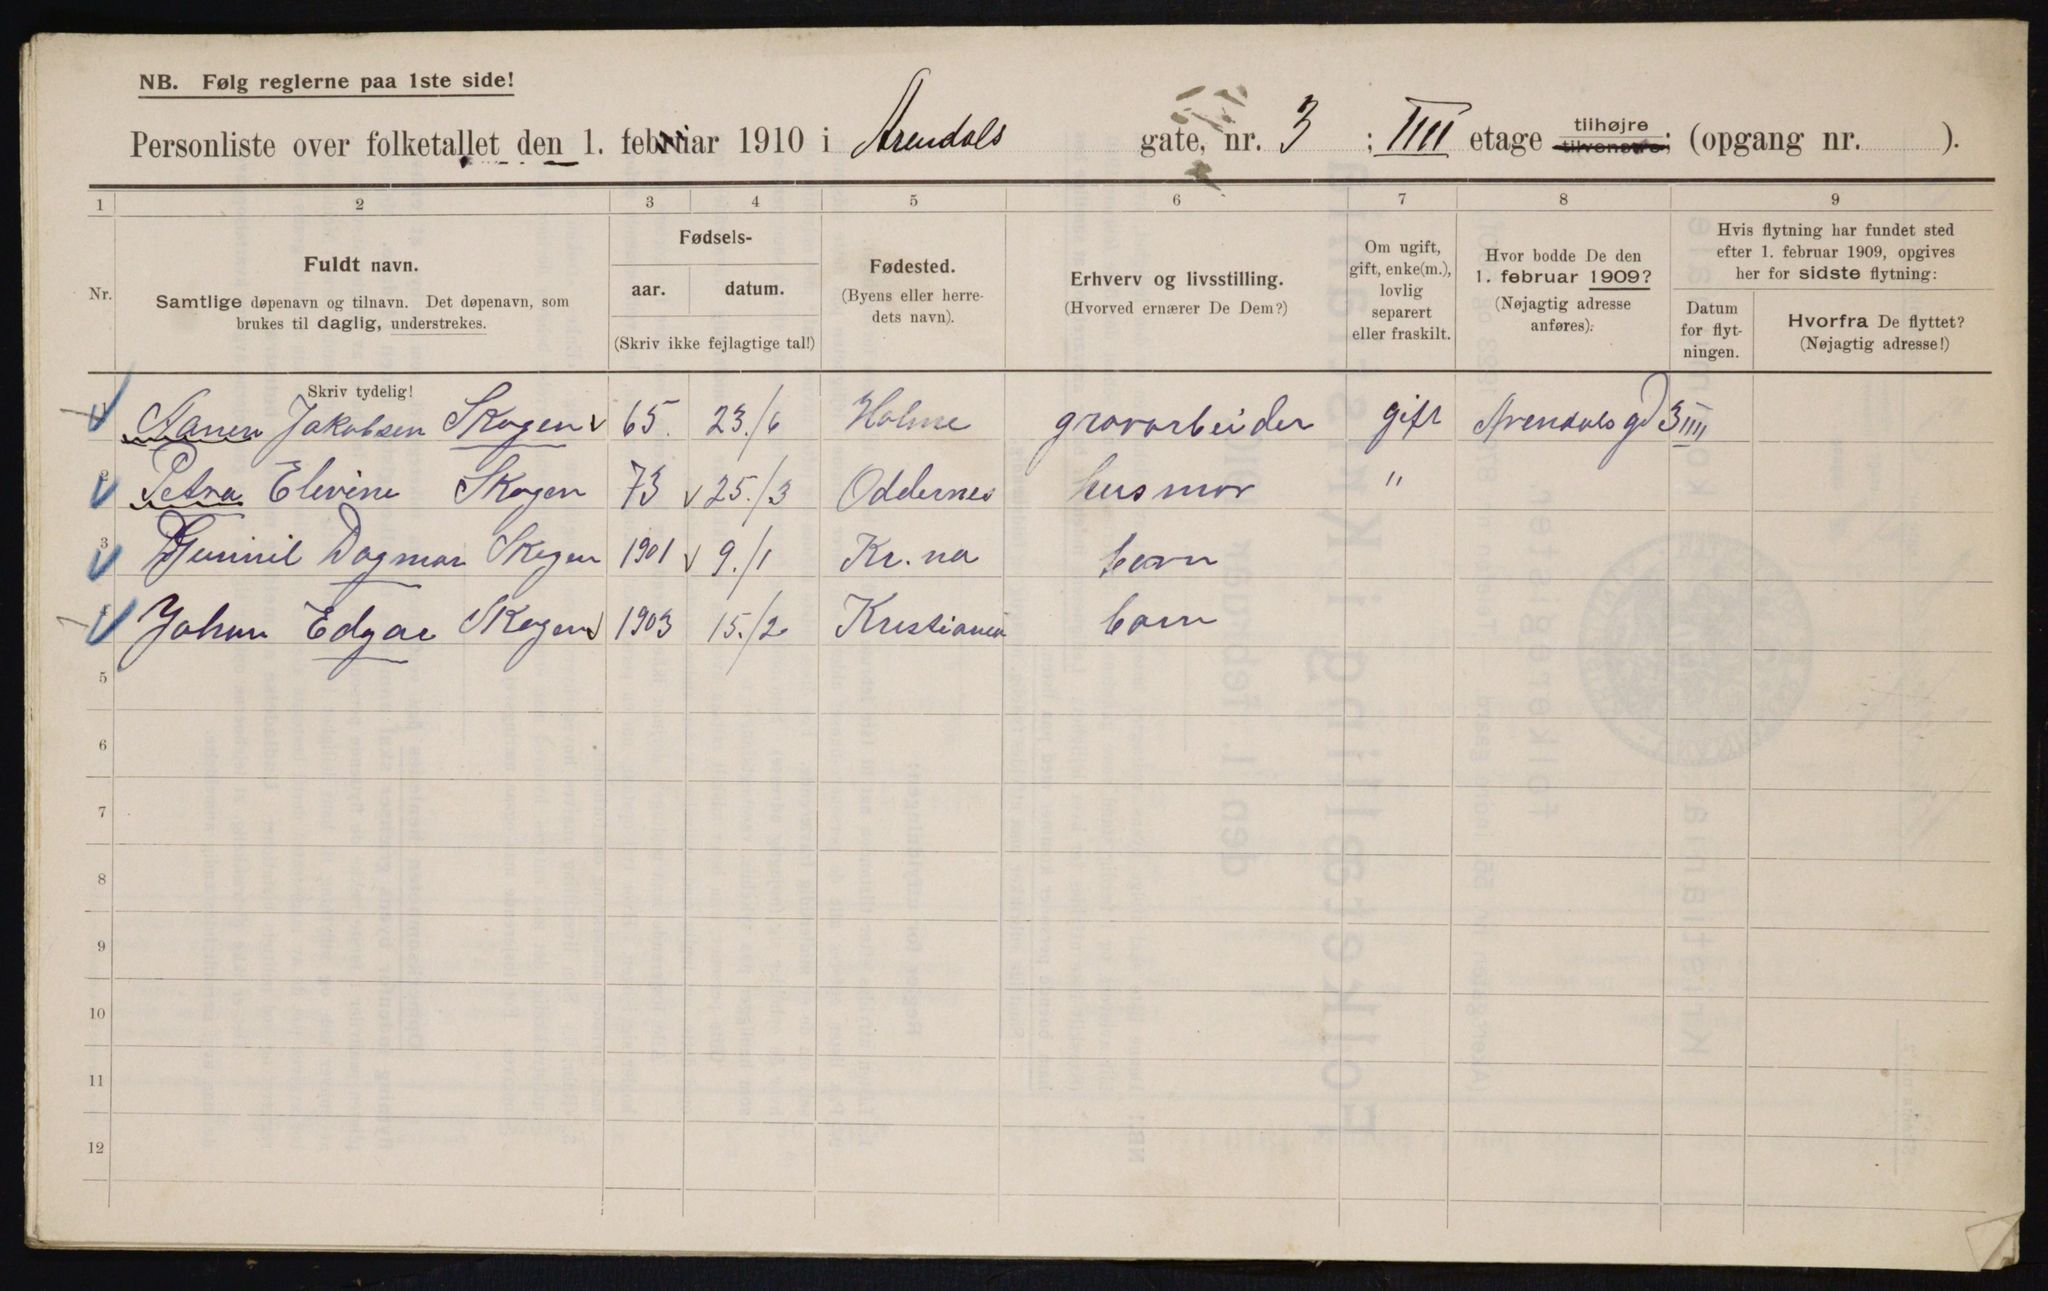 NB. Følg reglerne paa 1ste side!
Personliste over folketallet den 1. februar 1910 i Arendals gate, nr. 3 ; IIII etage tilhøjre tilvenstre; (opgang nr. ).
1 2 3 4 5 6 7 8 9
Nr.
Fuldt navn.
Samtlige døpenavn og tilnavn. Det døpenavn, som
brukes til daglig, understrekes.
Skriv tydelig!
Fødsels-
aar. datum.
(Skriv ikke fejlagtige tal!)
Fødested.
(Byens eller herre-
dets navn).
Erhverv og livsstilling.
(Hvorved ernærer De Dem?)
Om ugift,
gift, enke(m.),
lovlig
separert
eller fraskilt.
Hvor bodde De den
1. februar 1909?
(Nøjagtig adresse
anføres).
Hvis flytning har fundet sted
efter 1. februar 1909, opgives
her for sidste flytning:
Datum
for flyt-
ningen.
Hvorfra De flyttet?
(Nøjagtig adresse!)
1 Aanen Jakobsen Skogen 65. 23./6 Holme gravarbeider gift Arendals gd 3 IIII
2 Petra Elevine Skogen 73 25./3 Oddernes husmor "
3 Gunnil Dagmar Skogen 1901 9./1 Kr.na barn
4 Johan Edgar Skogen 1903 15./2 Kristiania barn
5
6
7
8
9
10
11
12